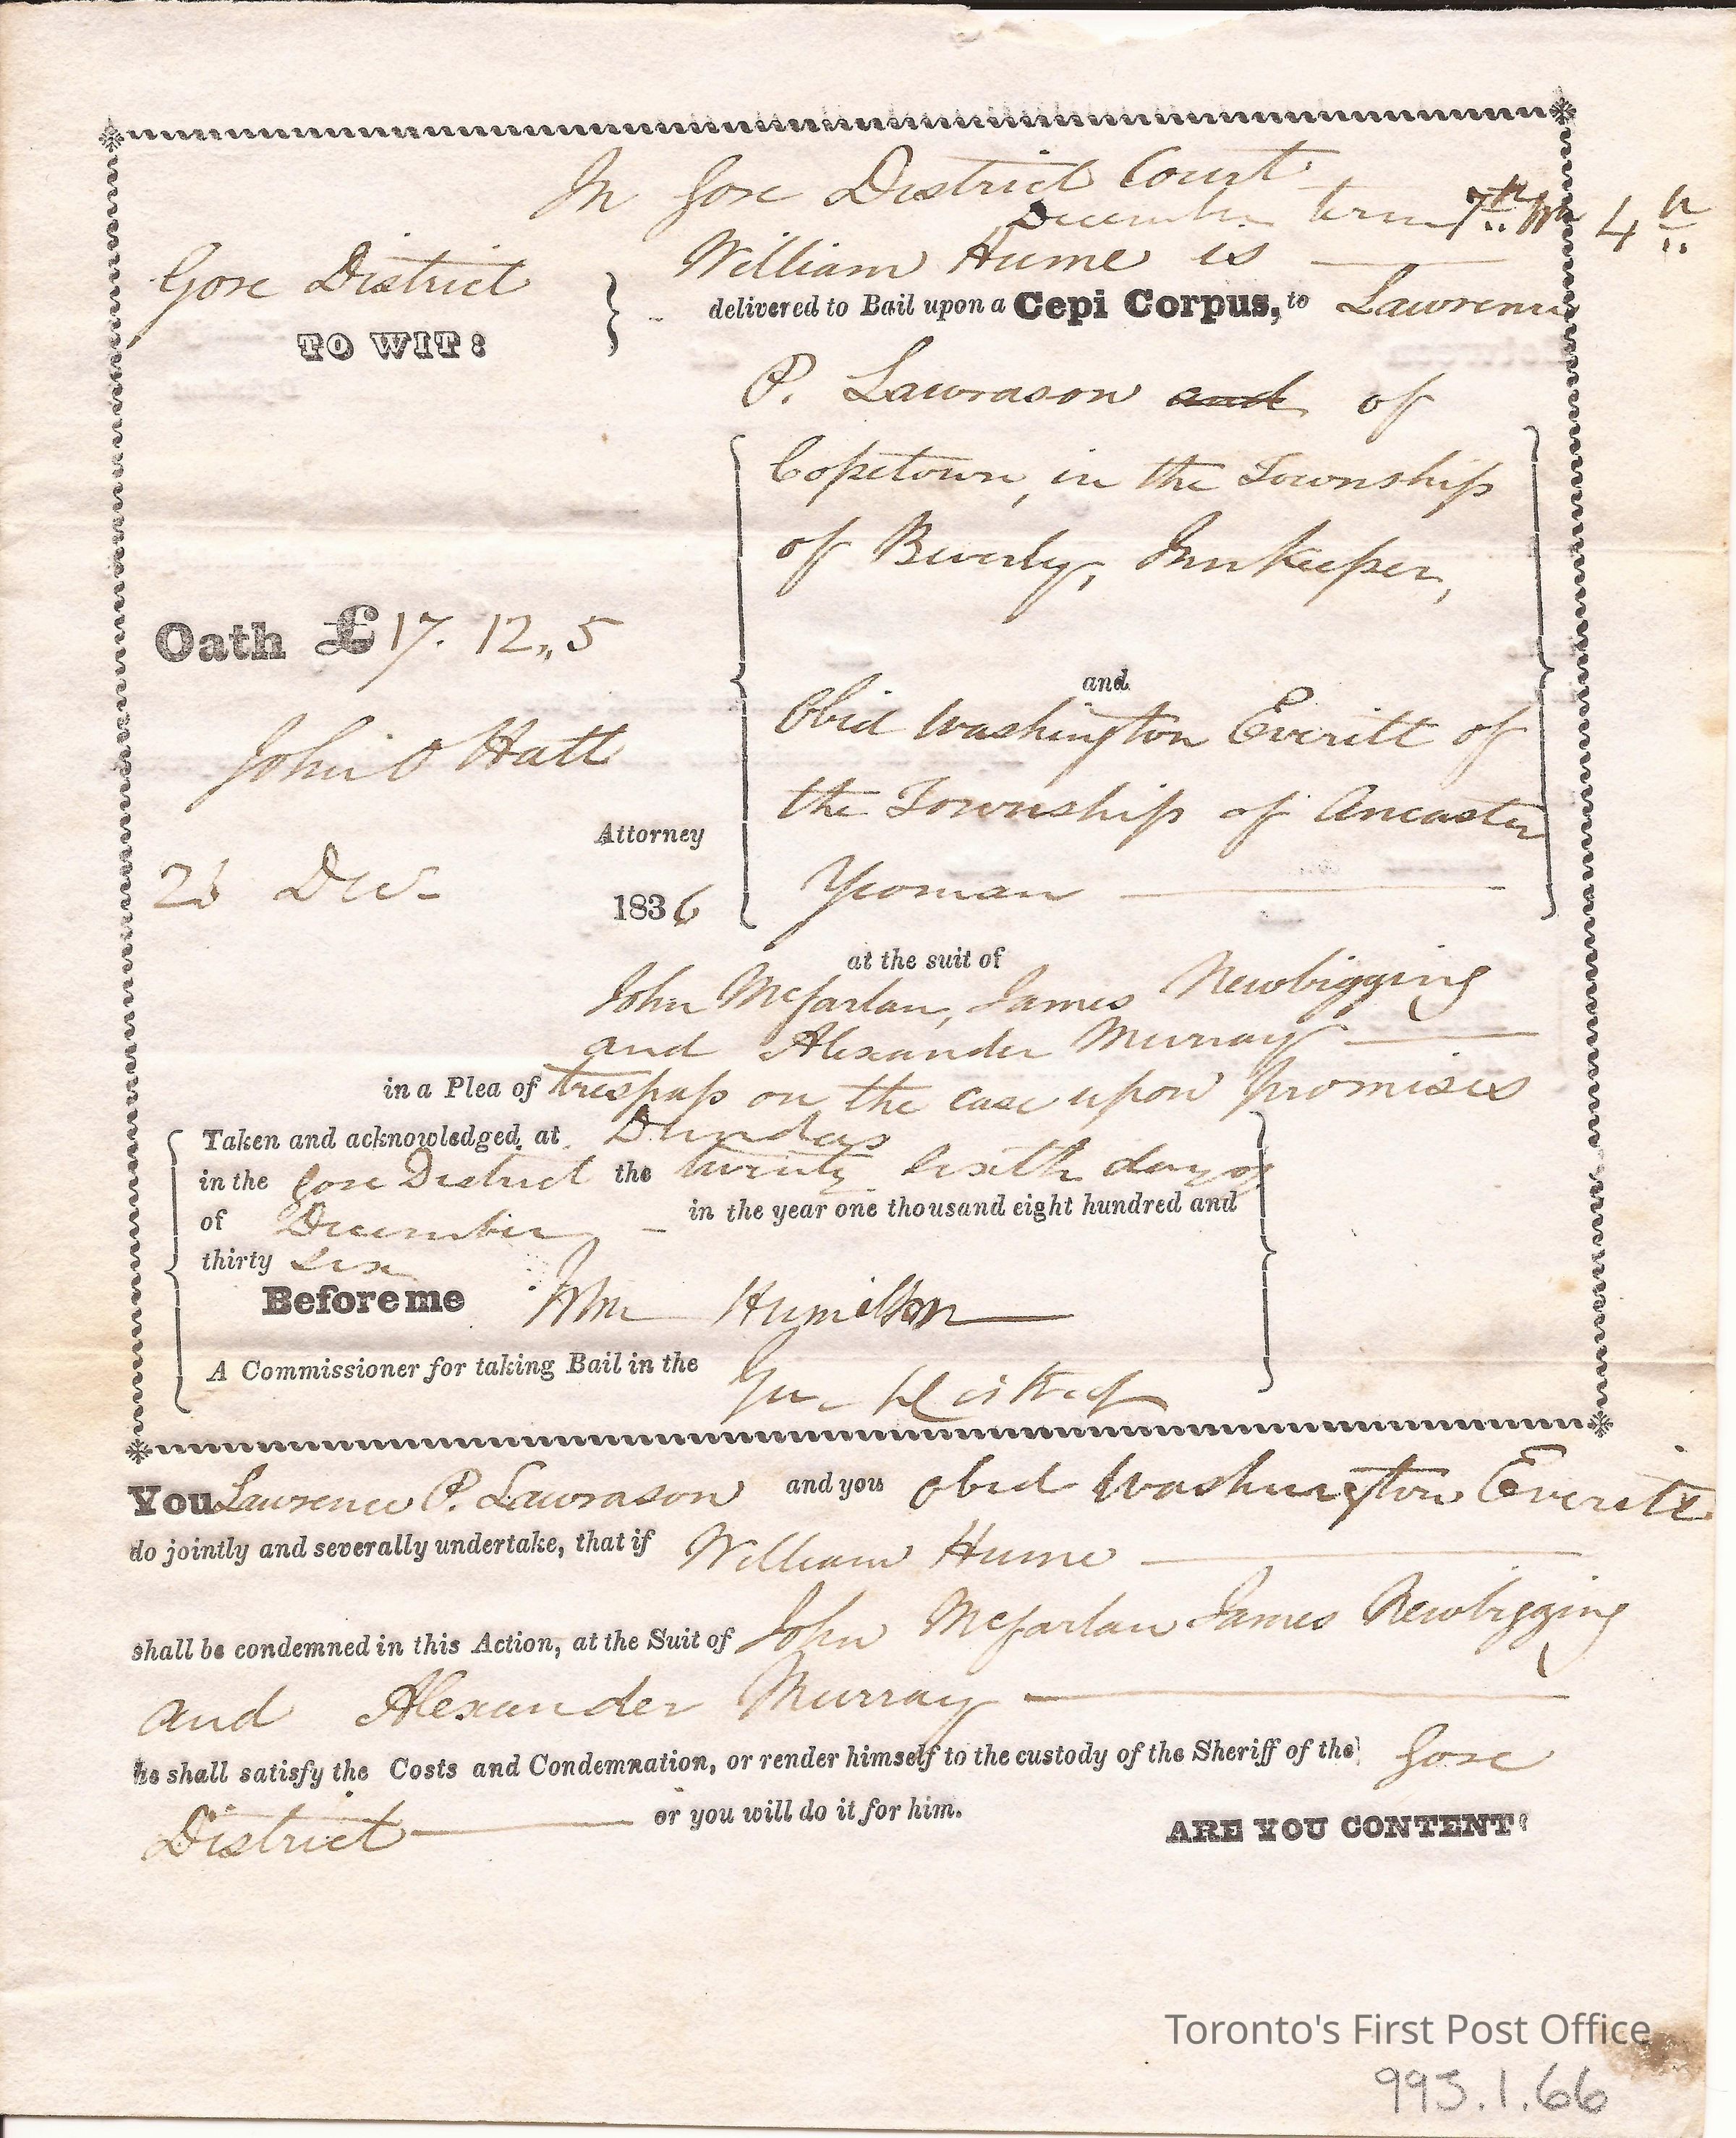 In Gore District Court
December term 7th Wm 4th
Gore District
TO WIT:
William Hume is
delivered to Bail upon a Cepi Corpus, to Lawrence
P. Lawrason and of
Copetown, in the Township
of Beverly, Innkeeper,
Oath £17. 12,, 5
and
Obid Washington Everitt of
John O Hatt
the Township of Ancaster
Attorney
Yeoman
Dec
1836
at the suit of
John Mcfarlan, James Newbigging
and Alexander Murray
in a Plea of trespass on the case upon promises
Taken and acknowledged, at Dundas
in the Gore District the twenty sixth day of
of December in the year one thousand eight hundred and
thirty six
Before me Wm Humilton
A Commissioner for taking Bail in the Gore District
You Lawrence P. Lawrason and you Obid Washington Everitt
do jointly and severally undertake, that if William Hume
shall be condemned in this Action, at the Suit of John Mcfarlan James Newbigging
and Alexander Murray
he shall satisfy the Costs and Condemnation, or render himself to the custody of the Sheriff of the Gore
District or you will do it for him.
ARE YOU CONTENT?
Toronto's First Post Office
993.1.66